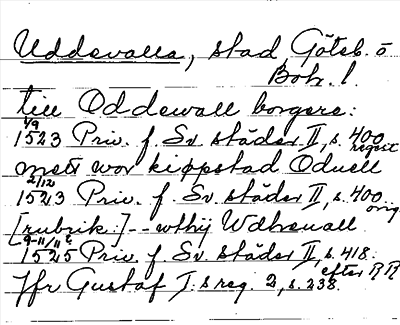 Uddevalla, stad Göteb. o
Boh. l.
till Oddewall borgere:
1/9
1523 Priv. f. Sv städer II, s. 400
regest
mett wor kippstad Oduell
2/12
1523 Priv. f. Sv städer II, s. 400
orig.
[rubrik:] -- wthij Wdhevall
9-11/11
1525 Priv. f. Sv städer II, s. 418.
efter RR
Jfr Gustaf I:s reg. 2, s. 238.